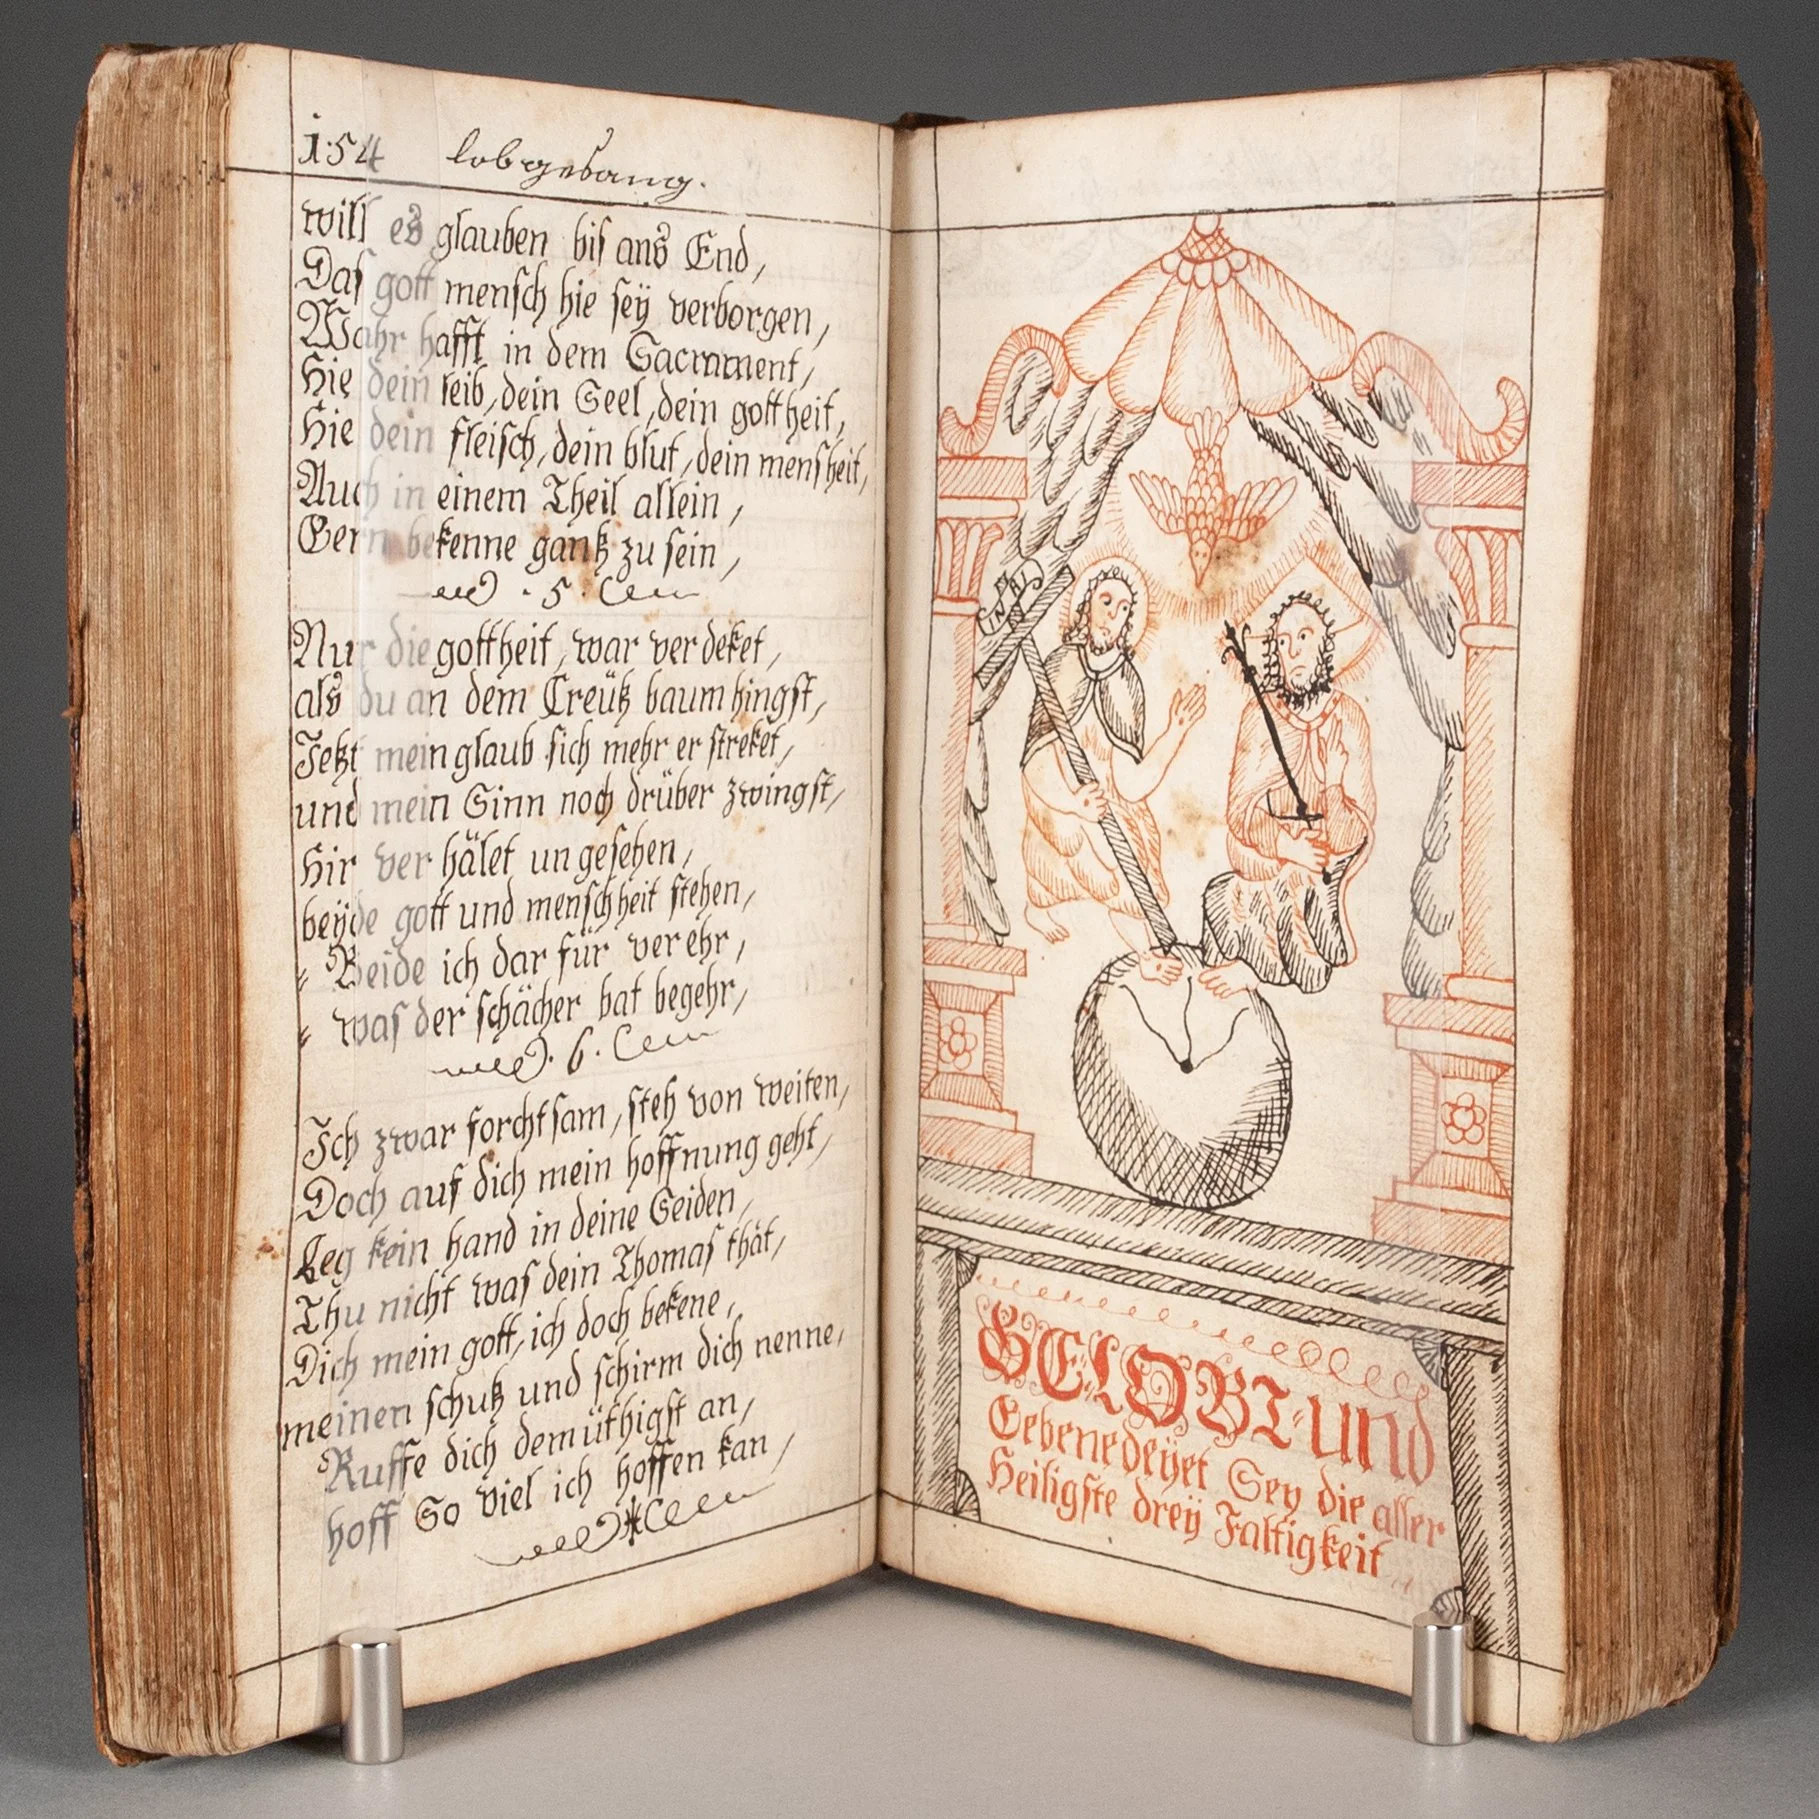 154 lobgesang.
will es glauben bis ans End,
Das gott mensch hie seÿ verborgen,
Wahr hafft in dem Sacrament,
Hie dein leib, dein Seel, dein gottheit,
Hie dein fleisch, dein blut, dein mensheit,
Auch in einem Theil allein,
Gern bekenne gantz zu sein,
. 5 .
Nur die gottheit, war ver deket,
als du an dem Creütz baum hingst,
Jetzt mein glaub sich mehr er streket,
und mein Sinn noch drüber zwingst,
Hir ver hälet un gesehen,
beÿde gott und menschheit stehen,
Beide ich dar für ver ehr,
was der schächer bat begehr,
. 6 .
Ich zwar forchtsam, steh von weiten,
Doch auf dich mein hoffnung geht,
Leg kein hand in deine Seiden,
Thu nicht was dein Thomas thät,
Dich mein gott, ich doch bekene,
meinen schutz und schirm dich nenne,
Ruffe dich demüthigst an,
hoff So viel ich hoffen kan,
INRI
GELOBT und
Gebenedeÿet Sey die aller
Heiligste dreÿ Faltigkeit